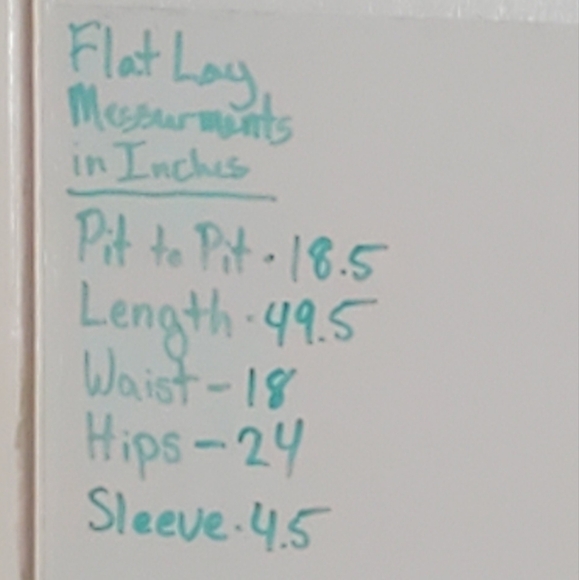 Flat Lay
Messurments
in Inches
Pit to Pit - 18.5
Length - 49.5
Waist - 18
Hips - 24
Sleeve - 4.5